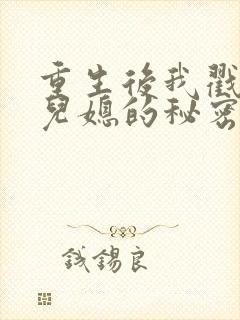 重生後我戳
兒媳的秘密
钱錫良